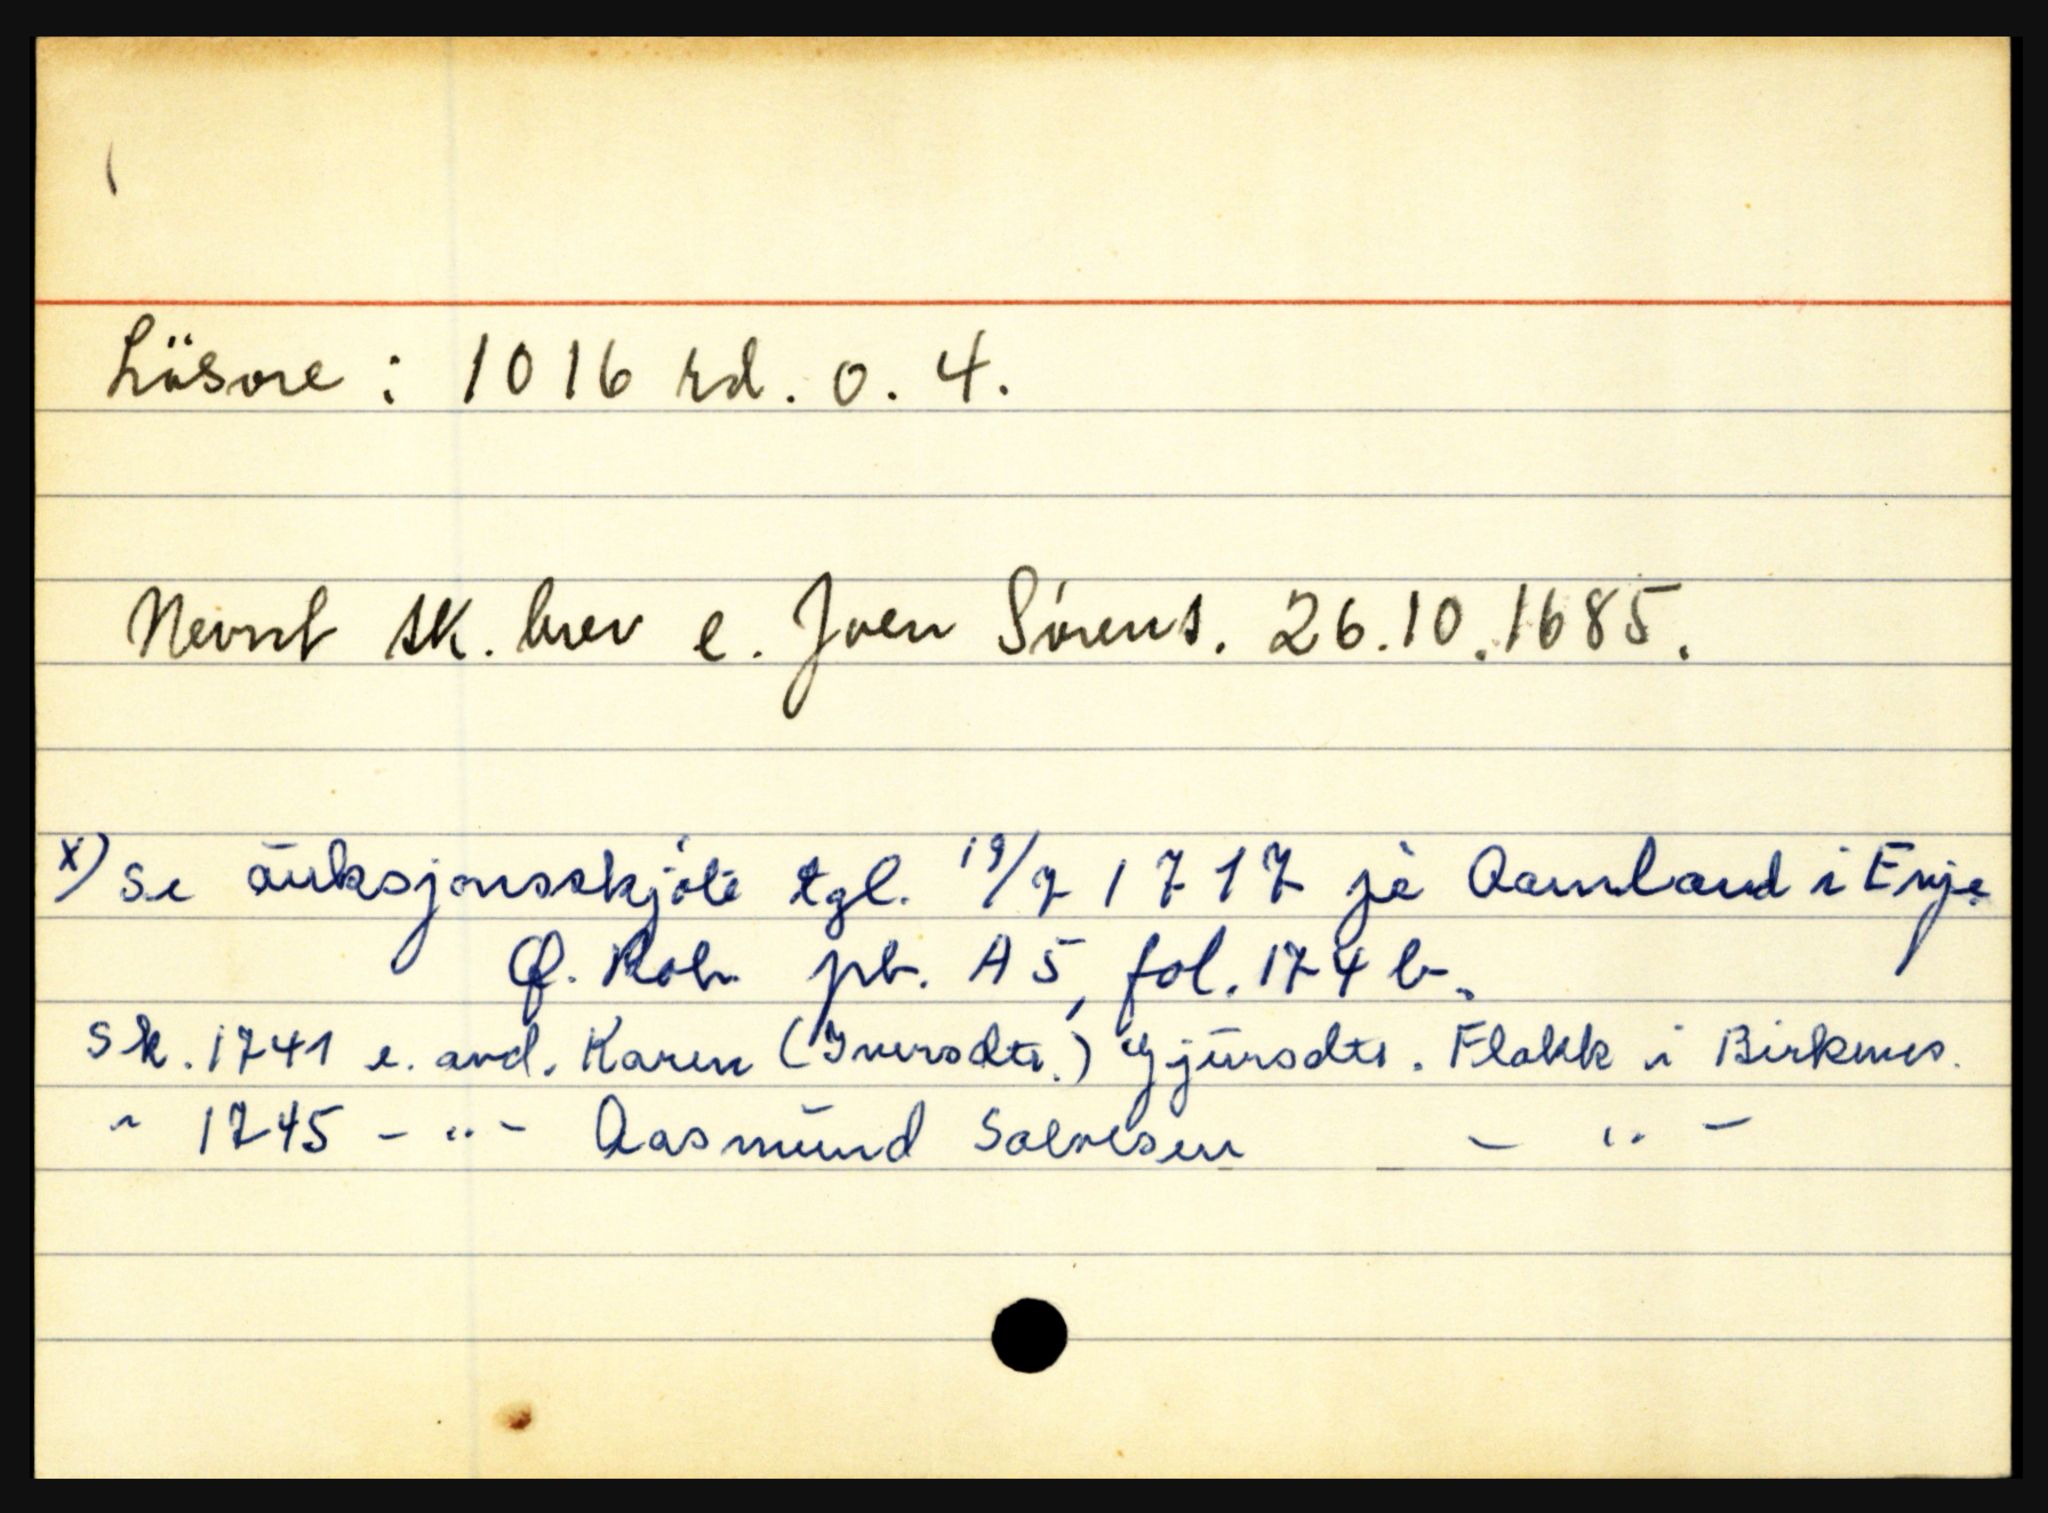 Lösöre : 1016 rd. o. 4.
Nevnt sk. brev e. Joen Sörens. 26.10.1685.
x) Se auksjonsskjöte tgl. 19/7 1717 på Aamland i Evje
Ø. Rob. pb. A 5, fol. 174 b.
Sk. 1741 e. avd. Karen (Iversdtr.) Gjursdtr. Flakk i Birkenes.
" 1745 - " - Aasmund Salvesen - " -